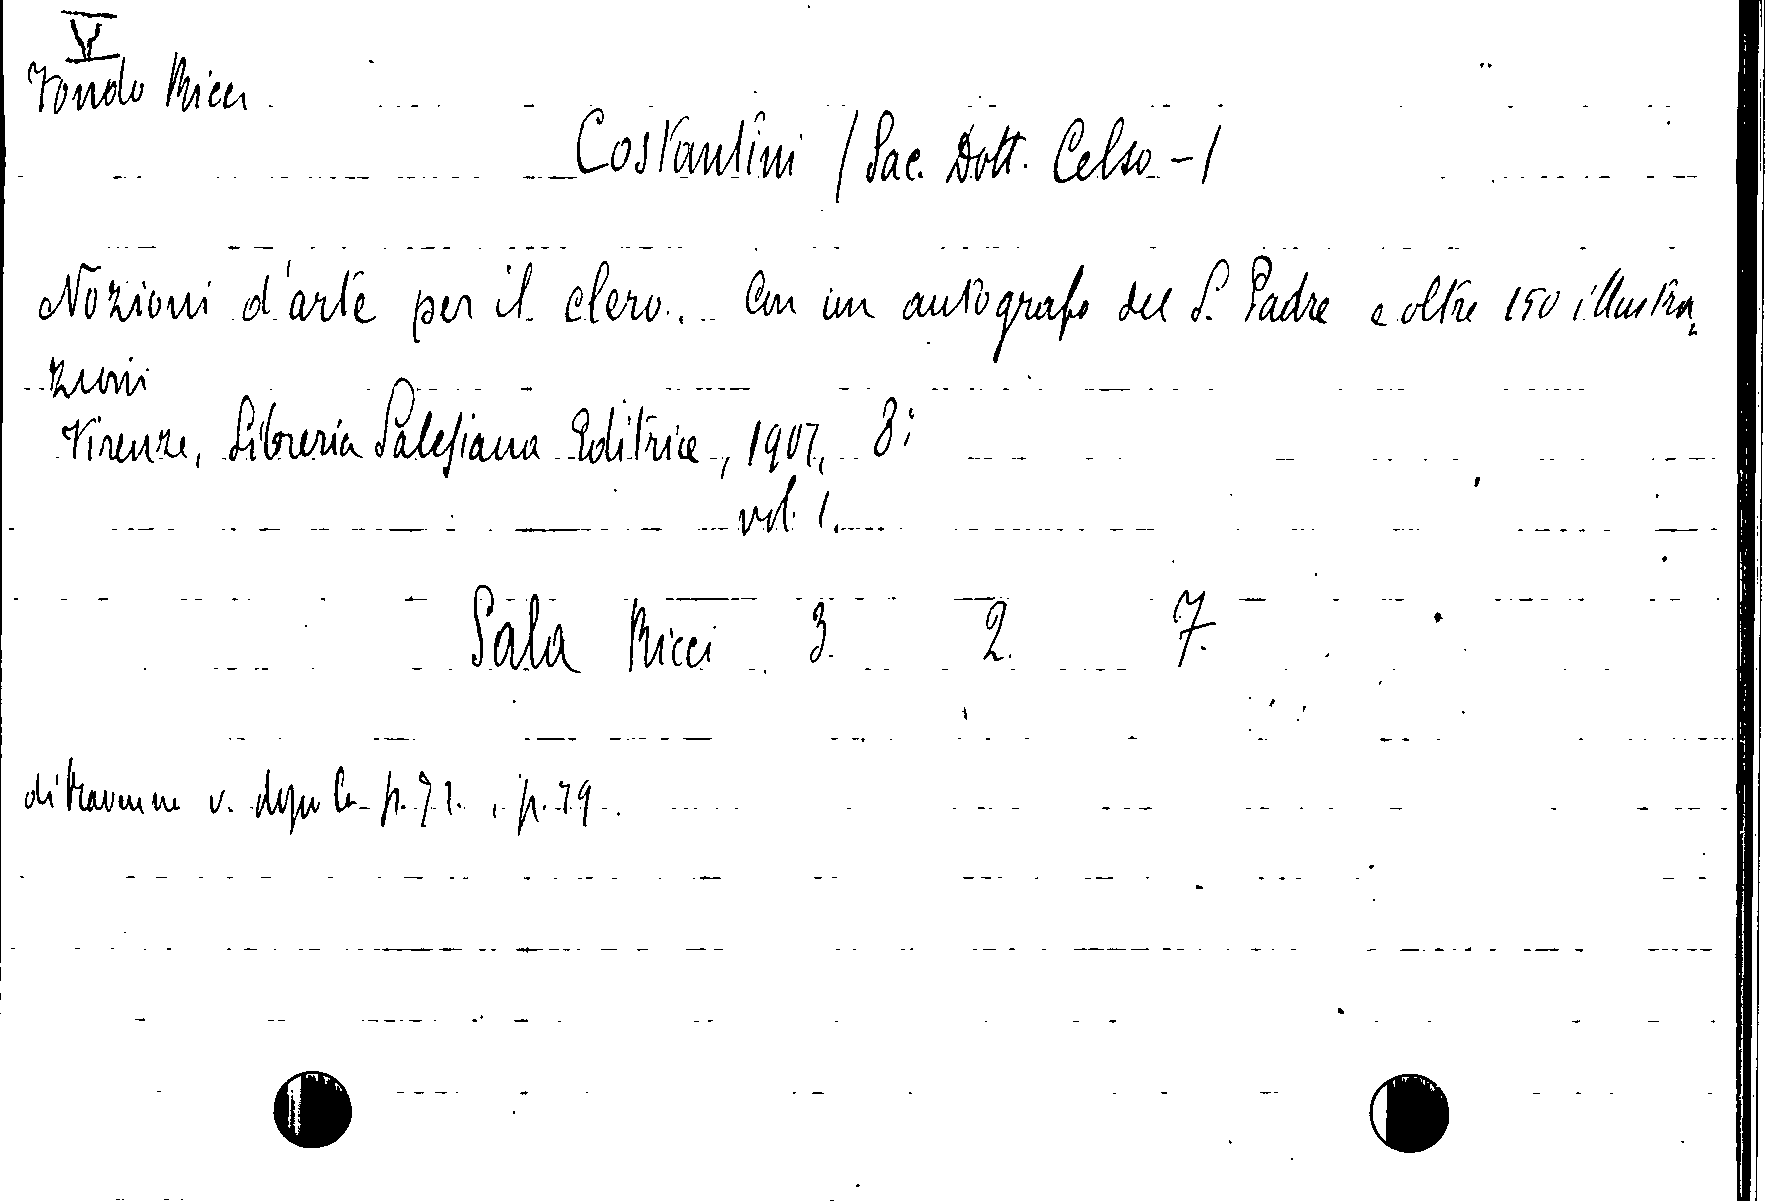 V
Fondo Ricci
Costantini / Sac. Dott. Celso - /
Nozioni d'arte per il clero. Con un autografo del S. Padre e oltre 150 illustra,
zioni
Firenze, Libreria Salesiana Editrice, 1907, 8:
vol. 1.
Sala Ricci 3. 2. 7.
di Ravenna v. p. 71., p. 79.